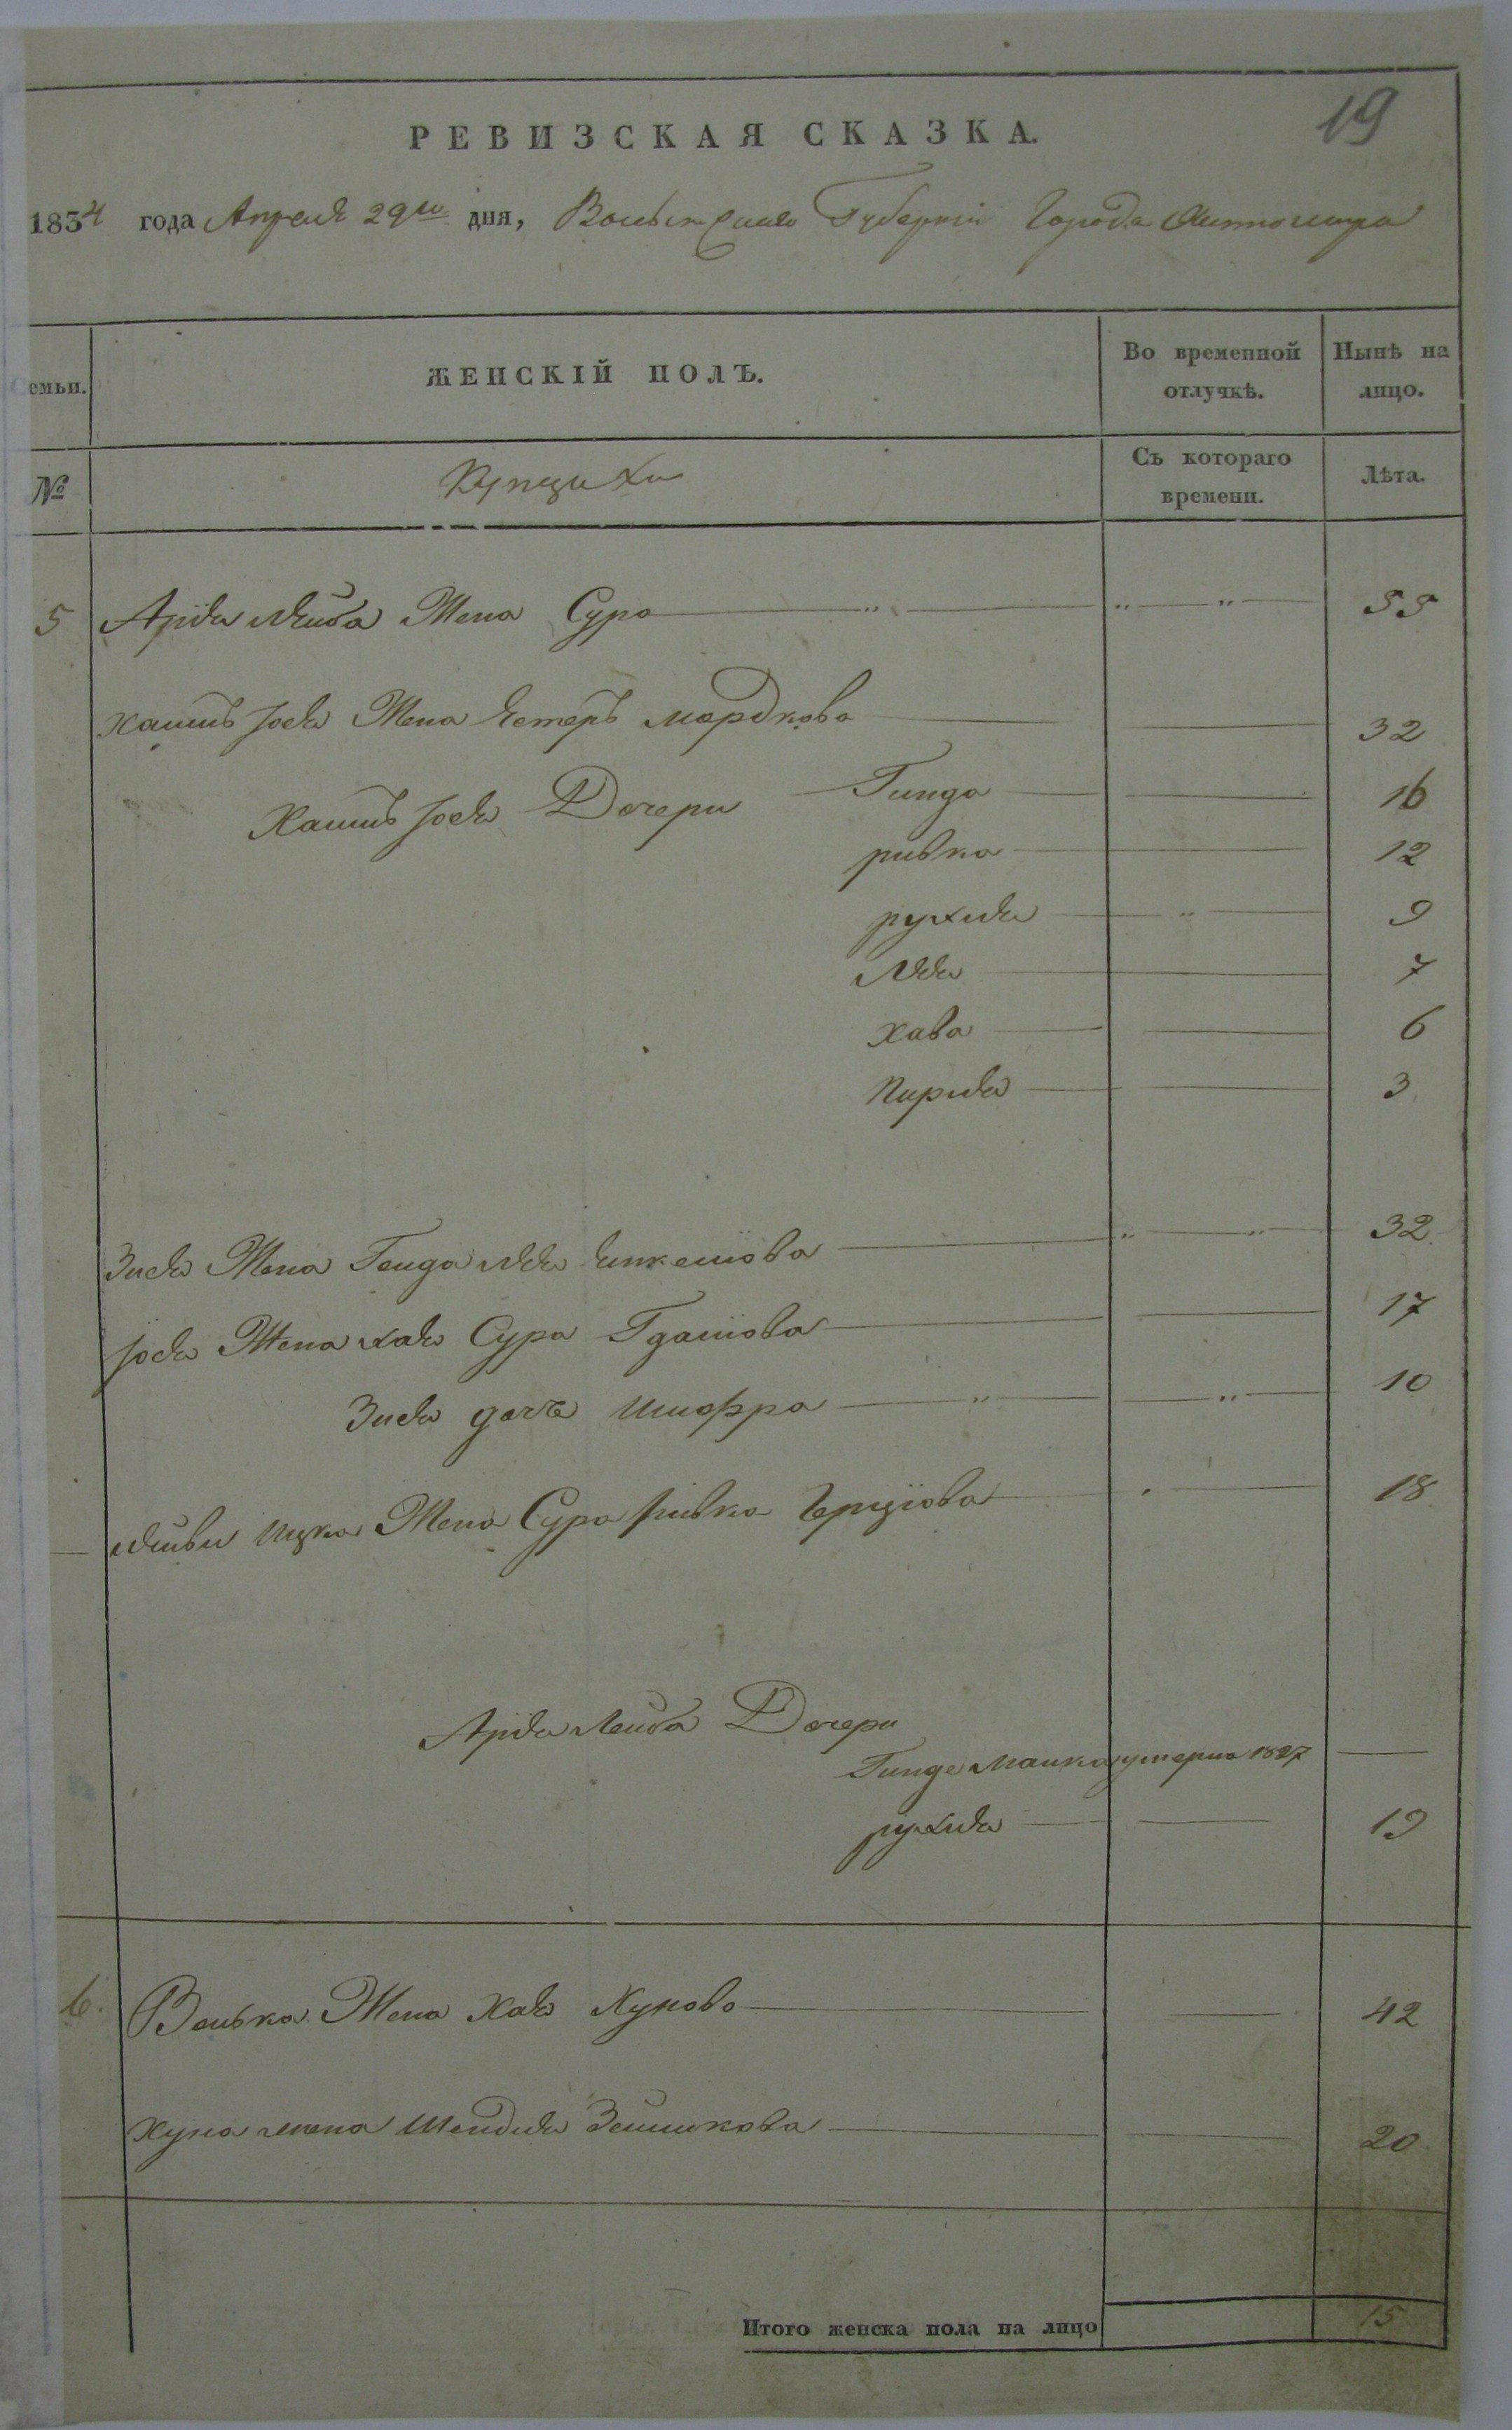 19
РЕВИЗСКАЯ СКАЗКА.
1834 года Апреля 29го дня, Волынской Губернии Города Житомира
Семьи. ЖЕНСКІЙ ПОЛЪ. Во временной отлучкѣ. Нынѣ на лицо.
№ Купчихи Съ котораго времени. Лѣта.
5 Арія Лейба Жена Сура " " " 55
Хаимъ Іося Жена Естеръ Мордкова 32
Хаимъ Іося Дочери Гинда 16
ривка 12
рухля " 9
Лея 7
Хава 6
Пирля 3
Зися Жена Генда Лея " " 32
Іося Жена хая Сура 17
Зися дочь Шифра " " 10
Лейби Ицка Жена Сура Ривка Герціова 18
Арія Лейба Дочери
Гинде Малка умерла 1827
рухля 19
6. Велька Жена Хая Хунова 42
Хуна жена Шейдля 20
Итого женска пола на лицо 15